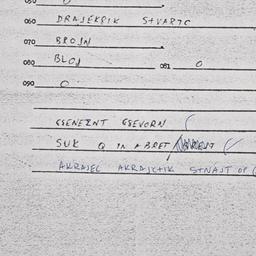 050
060 DRAJEKRIK STVARTC
070 BROJN
080 BLOJ 081 0
090 0
GSENEZNT GSEVORN
SUK Q IN ABRET
AKRAJEC AKRAJKTIK STNAST OP